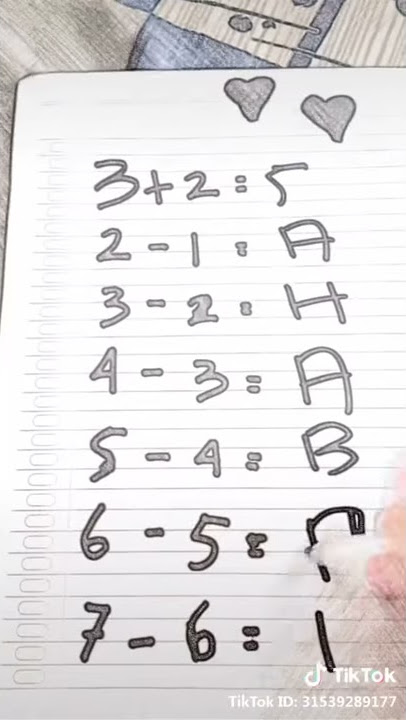 3+2=5
2-1=A
3-2=H
4-3=A
5-4=B
6-5=
7-6=1
TikTok
TikTok ID: 31539289177